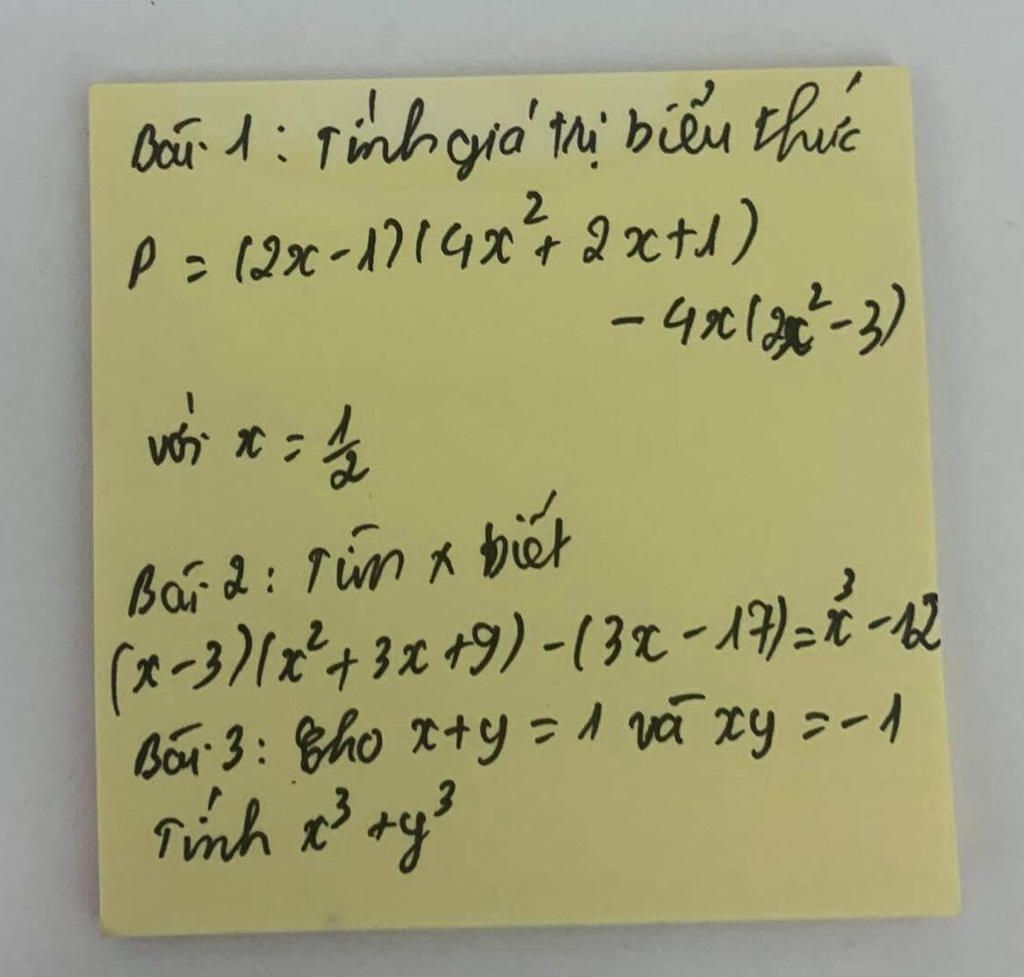 Bài 1: Tính giá trị biểu thức
P = (2x-1)(4x²+ 2x+1)
- 4x(2x²-3)
với x = 1/2
Bài 2: Tìm x biết
(x-3)(x²+3x+9)-(3x-17)=x³-12
Bài 3: Cho x+y = 1 và xy = -1
Tính x³+y³